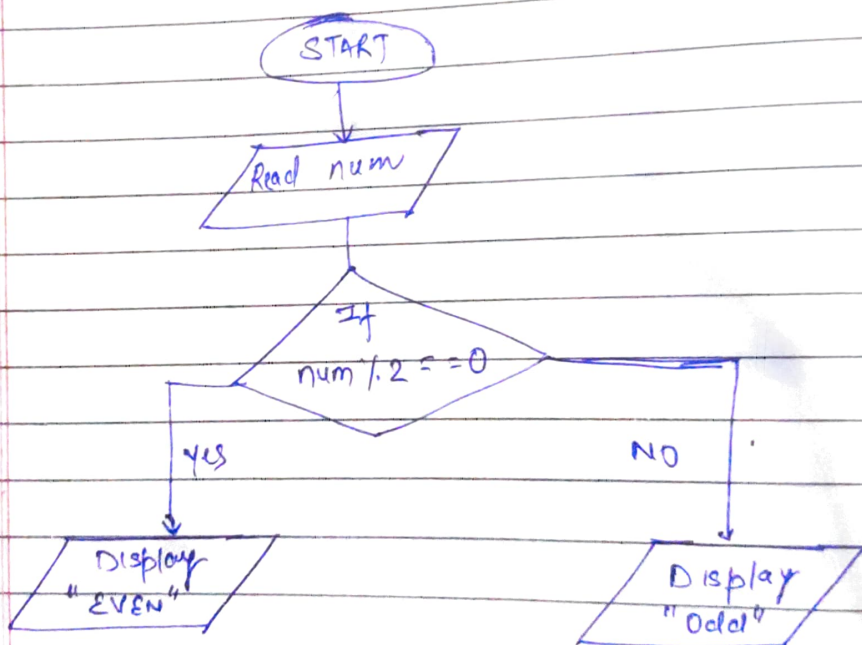 START
Read num
If
num % 2 = = 0
yes
NO
Display
"EVEN"
Display
"Odd"